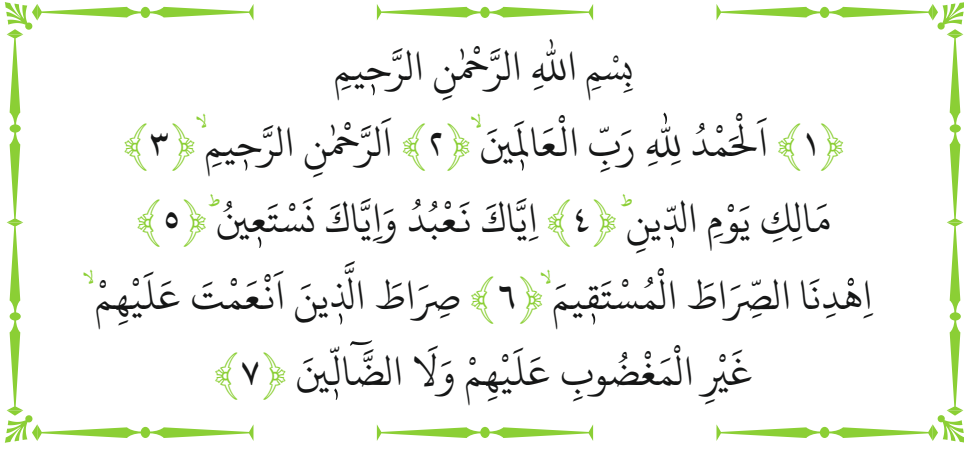 بِسْمِ اللّٰهِ الرَّحْمٰنِ الرَّح۪يمِ
﴿١﴾ اَلْحَمْدُ لِلّٰهِ رَبِّ الْعَالَم۪ينَۙ ﴿٢﴾ اَلرَّحْمٰنِ الرَّح۪يمِۙ ﴿٣﴾
مَالِكِ يَوْمِ الدّ۪ينِۜ ﴿٤﴾ اِيَّاكَ نَعْبُدُ وَاِيَّاكَ نَسْتَع۪ينُۜ ﴿٥﴾
اِهْدِنَا الصِّرَاطَ الْمُسْتَق۪يمَۙ ﴿٦﴾ صِرَاطَ الَّذ۪ينَ اَنْعَمْتَ عَلَيْهِمْۙ
غَيْرِ الْمَغْضُوبِ عَلَيْهِمْ وَلَا الضَّٓالّ۪ينَ ﴿٧﴾